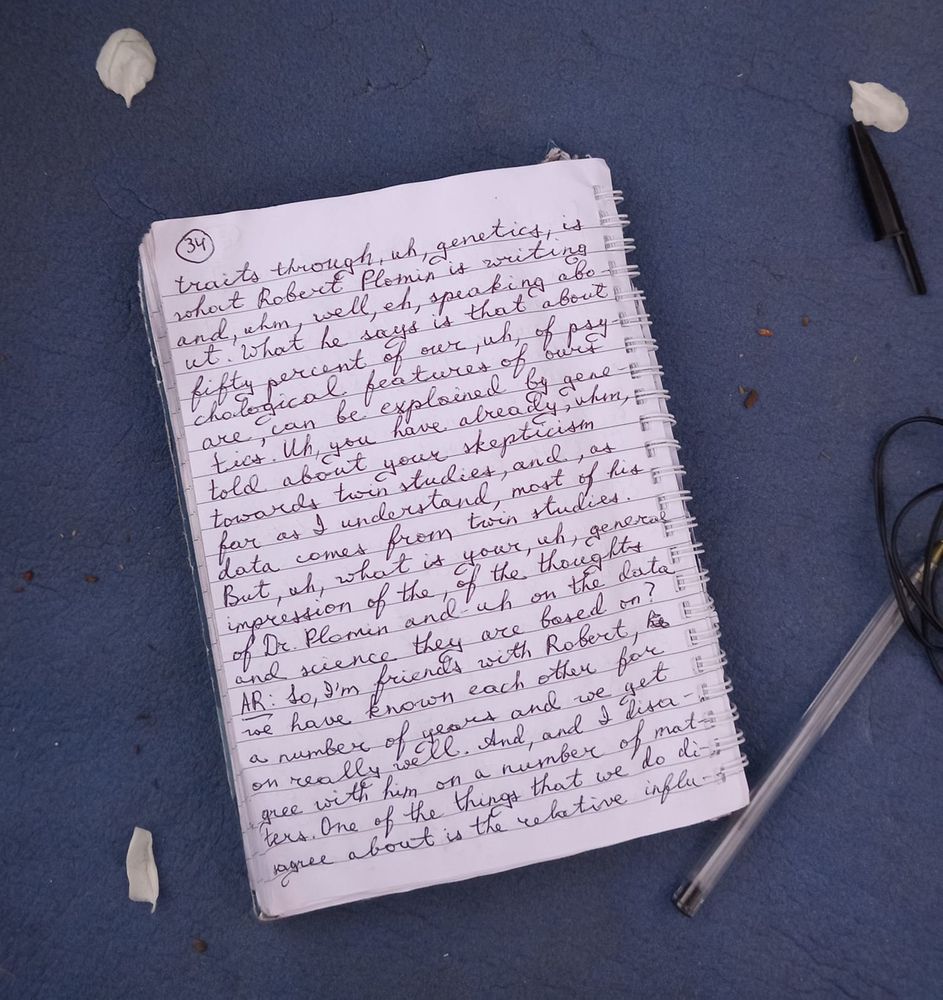 34
traits through, uh, genetics, is
what Robert Plomin is writing
and, uhm, well, eh, speaking abo-
ut. What he says is that about
fifty percent of our, uh, of psy-
chological features of ours
are, can be explained by gene-
tics. Uh, you have already, uhm,
told about your skepticism
towards twin studies, and, as
far as I understand, most of his
data comes from twin studies.
But, uh, what is your, uh, general
impression of the, of the thoughts
of Dr. Plomin and uh on the data
and science they are based on?
AR: So, I'm friends with Robert,
we have known each other for
a number of years and we get
on really well. And, and I disa-
gree with him on a number of mat-
ters. One of the things that we do di-
agree about is the relative influ-